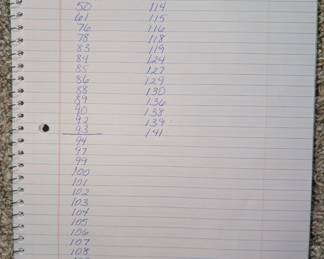 50
61
76
78
83
84
85
86
88
89
90
92
93
94
97
99
100
101
102
103
104
105
106
107
108
114
115
116
118
119
124
127
129
130
136
138
139
141